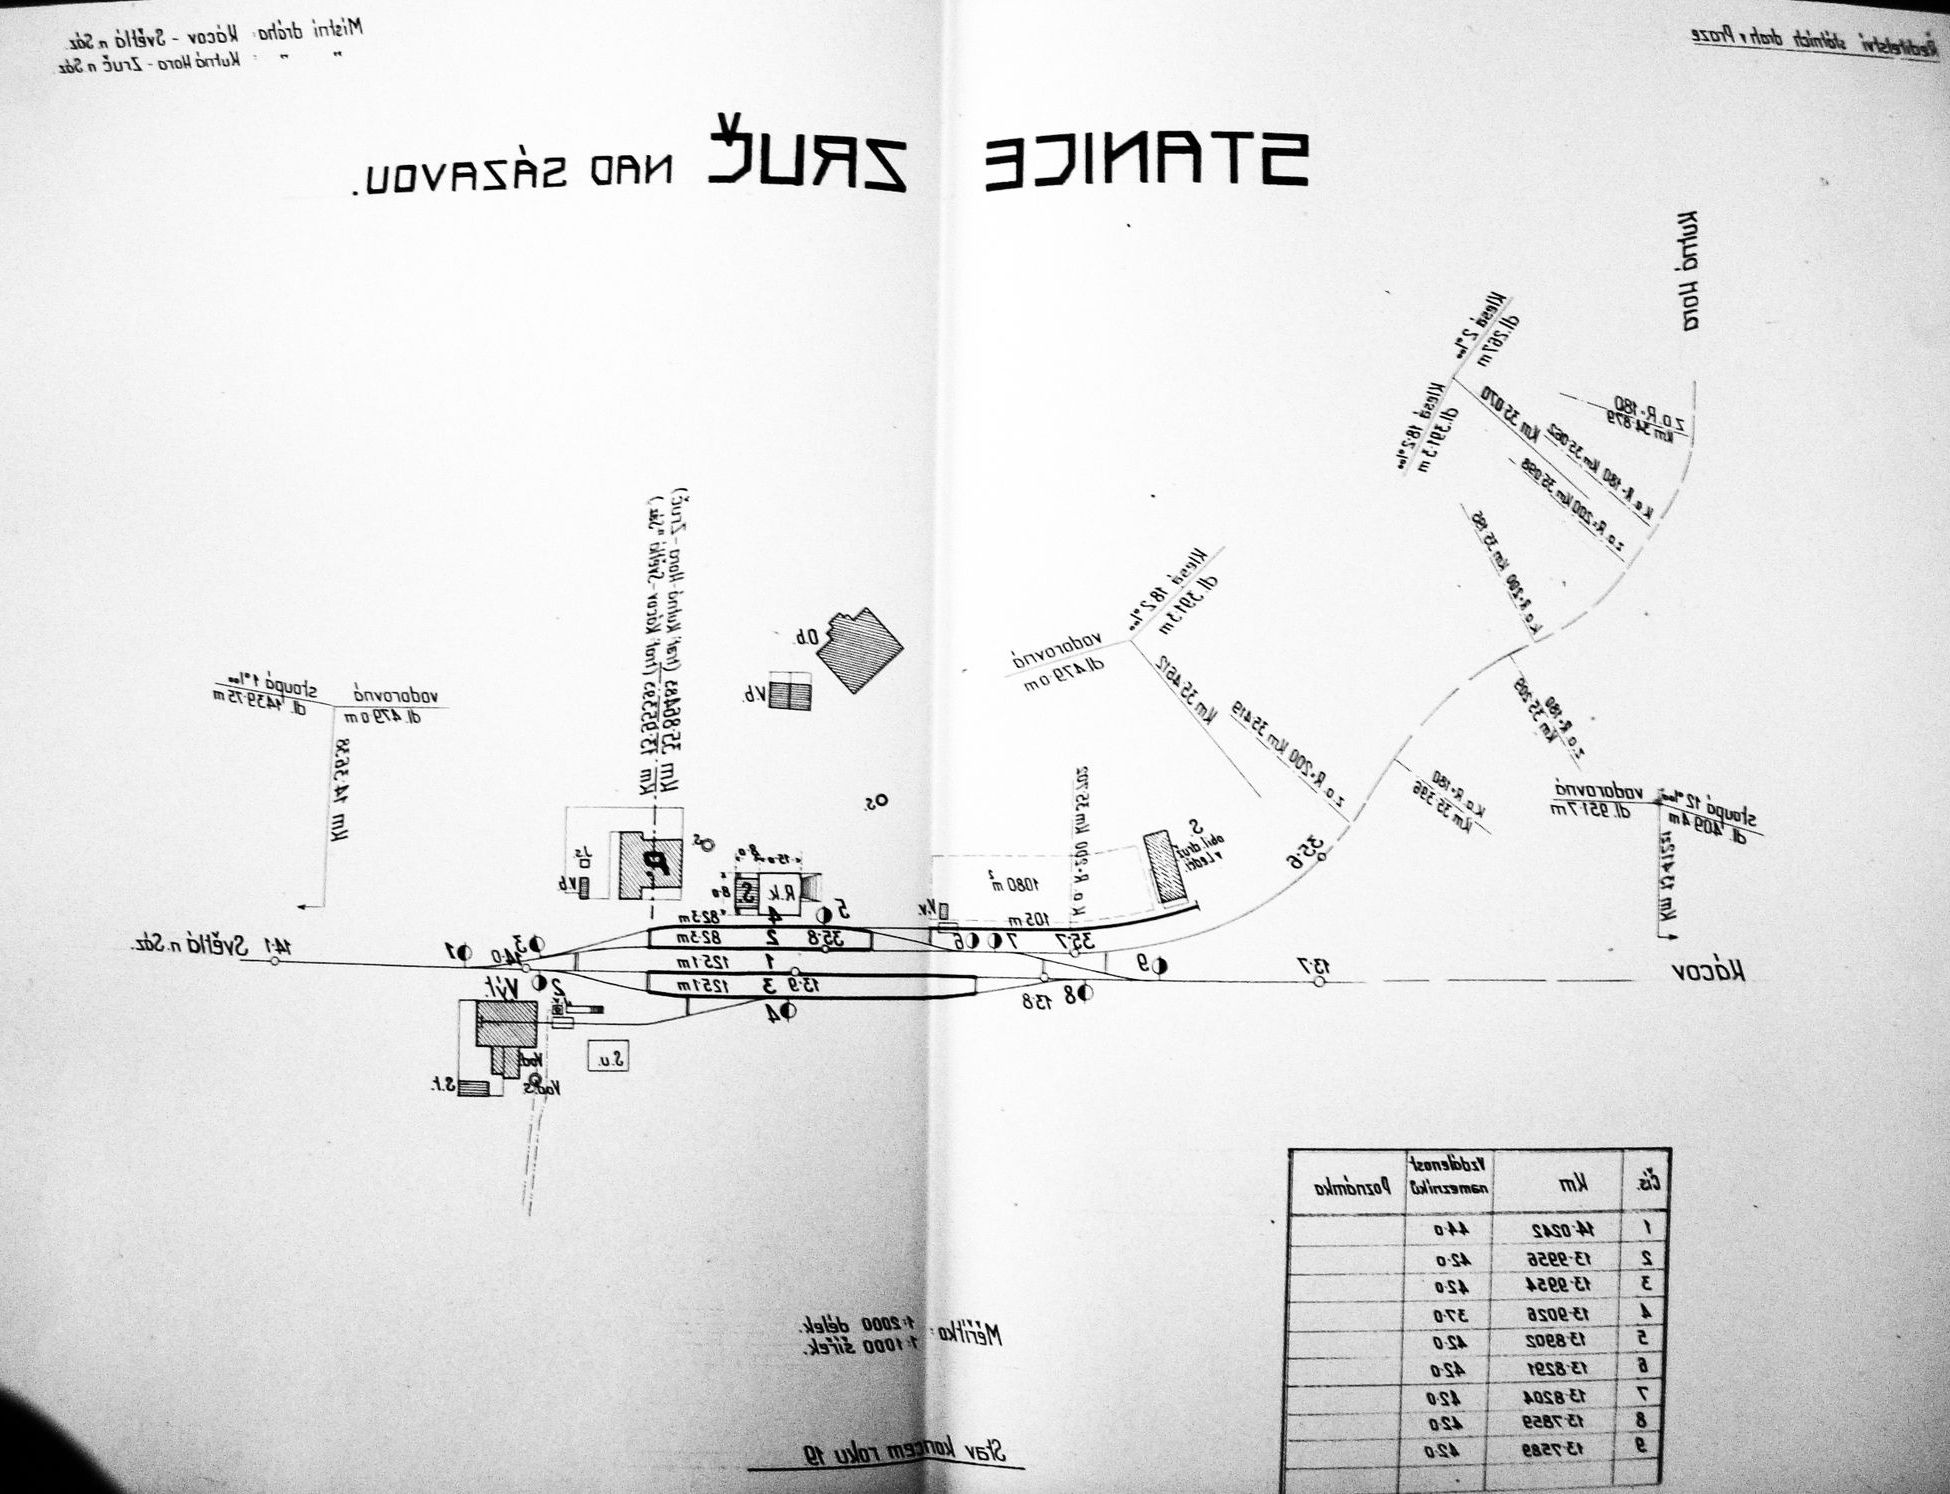 Ředitelství státních drah v Praze
Místní dráha: Kácov - Světlá n. Sáz.
" " : Kutná Hora - Zruč n. Sáz.
STANICE ZRUČ NAD SÁZAVOU.
Kutná Hora
Klesá 2‰
dl. 267 m
Klesá 18·2‰
dl. 391·3 m
Km 35·070
z.o. R=180
Km 34·879
k.o. R=180 Km 35·062
z.o. R=200 Km 35·098
k.o. R=200 Km 35·195
z.o. R=180
Km 35·209
k.o. R=180
Km 35·396
z.o. R=200 Km 35·419
Klesá 18·2‰
dl. 391·3 m
vodorovná
dl. 479·0 m
Km 35·4612
k.o. R=200 Km 35·702
stoupá 12‰
dl. 409·4 m
vodorovná
dl. 951·7 m
Kácov
Km: 13·95393 (trať: Kácov - Světlá n. Sáz.)
Km: 35·86483 (trať: Kutná Hora - Zruč)
O.b.
V.b.
S.
vodorovná
dl. 479·0 m
stoupá 1‰
dl. 1439·75 m
Km 14·3638
P.
S.
J.s.
V.b.
S.
R.k.
8·0
15·0
8·0
V.v.
1080 m²
105 m
S.
obil. druž.
v Ledči
35·6
35·7
35·8
4 82·3 m
2 82·3 m
1 125·1 m
3 125·1 m
13·7
13·8
13·9
14·0
14·1
Světlá n. Sáz.
1
2
3
4
5
6
7
8
9
Výt.
Vod.
Vod. s.
S.t.
S.u.
Čís. Km Vzdálenost námezníků Poznámka
1 14·0242 44·0
2 13·9956 42·0
3 13·9954 42·0
4 13·9026 37·0
5 13·8902 42·0
6 13·8291 42·0
7 13·8204 42·0
8 13·7859 42·0
9 13·7589 42·0
Měřítko: 1:2000 délek.
1:1000 šířek.
Stav koncem roku 19